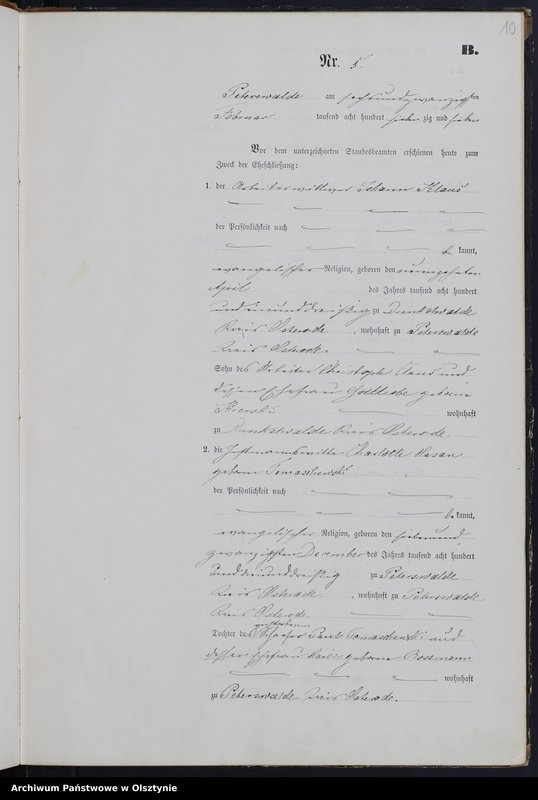 10
B.
Nr. 5.
Peterswalde am sechsundzwanzigsten
Februar tausend acht hundert sieben zig und sieben
Vor dem unterzeichneten Standesbeamten erschienen heute zum
Zweck der Eheschließung:
1. der Arbeiter wittwer Johann Klaus
der Persönlichkeit nach
be kannt,
evangelischer Religion, geboren den neunzehnten
April des Jahres tausend acht hundert
und einunddreißig zu
Kreis Osterode, wohnhaft zu Peterswalde
Kreis Osterode.
Sohn des Arbeiter Christoph Claus und
dessen Ehefrau Gottliebe geborne
wohnhaft
zu Kreis Osterode.
2. die Charlotte Kasan
geborne Tomaschewski
der Persönlichkeit nach
be kannt,
evangelischer Religion, geboren den siebenund
zwanzigsten December des Jahres tausend acht hundert
und dreiunddreißig zu Peterswalde
Kreis Osterode, wohnhaft zu Peterswalde
Kreis Osterode
verstorbenen
Tochter des Schäfer Paul Tomaschewski und
dessen Ehefrau Marie geborne Rossmann
wohnhaft
zu Peterswalde Kreis Osterode.
Archiwum Państwowe w Olsztynie